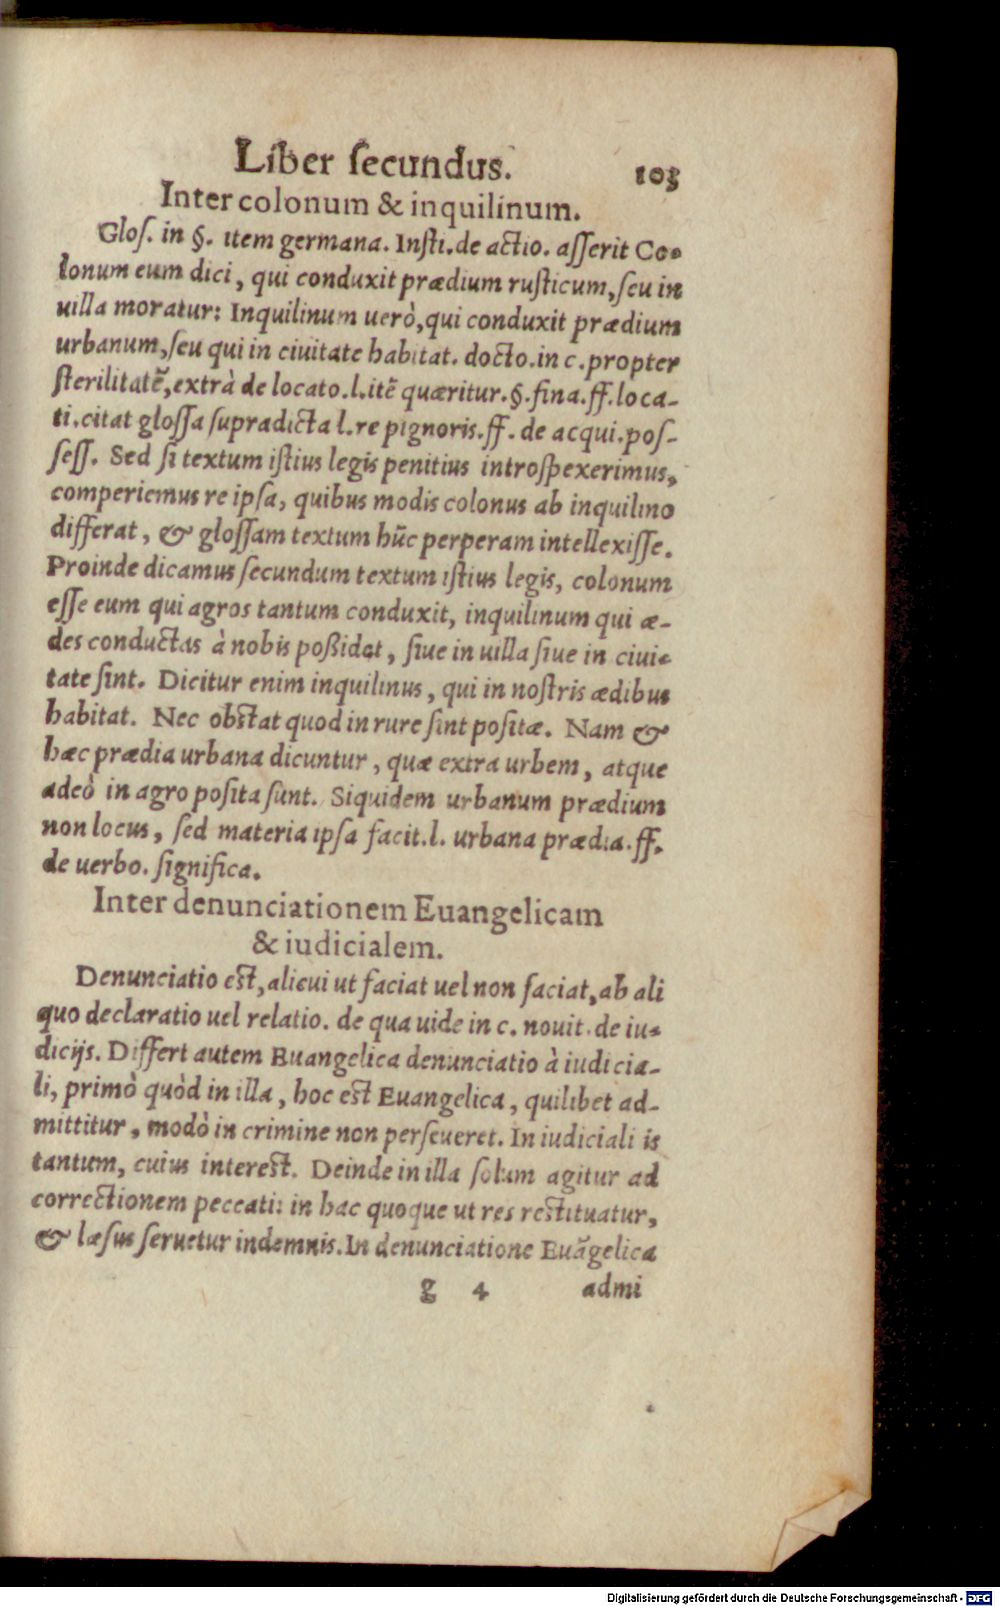 Liber secundus. 103
Inter colonum & inquilinum.
Glos. in §. item germana. Insti. de actio. asserit Co-
lonum eum dici, qui conduxit prædium rusticum, seu in
uilla moratur: Inquilinum uerò, qui conduxit prædium
urbanum, seu qui in ciuitate habitat. docto. in c. propter
sterilitatē, extrà de locato. l. itē quæritur. §. fina. ff. loca-
ti. citat glossa supradicta l. re pignoris. ff. de acqui. pos-
sess. Sed si textum istius legis penitius introspexerimus,
comperiemus re ipsa, quibus modis colonus ab inquilino
differat, & glossam textum hūc perperam intellexisse.
Proinde dicamus secundum textum istius legis, colonum
esse eum qui agros tantum conduxit, inquilinum qui æ-
des conductas à nobis poßidet, siue in uilla siue in ciui-
tate sint. Dicitur enim inquilinus, qui in nostris ædibus
habitat. Nec obstat quod in rure sint positæ. Nam &
hæc prædia urbana dicuntur, quæ extra urbem, atque
adeò in agro posita sunt. Siquidem urbanum prædium
non locus, sed materia ipsa facit. l. urbana prædia. ff.
de uerbo. significa.
Inter denunciationem Euangelicam
& iudicialem.
Denunciatio est, alicui ut faciat uel non faciat, ab ali
quo declaratio uel relatio. de qua uide in c. nouit. de iu-
dicijs. Differt autem Euangelica denunciatio à iudicia-
li, primò quòd in illa, hoc est Euangelica, quilibet ad-
mittitur, modò in crimine non perseueret. In iudiciali is
tantum, cuius interest. Deinde in illa solum agitur ad
correctionem peccati: in hac quoque ut res restituatur,
& læsus seruetur indemnis. In denunciatione Euāgelica
g 4 admi
Digitalisierung gefördert durch die Deutsche Forschungsgemeinschaft - DFG